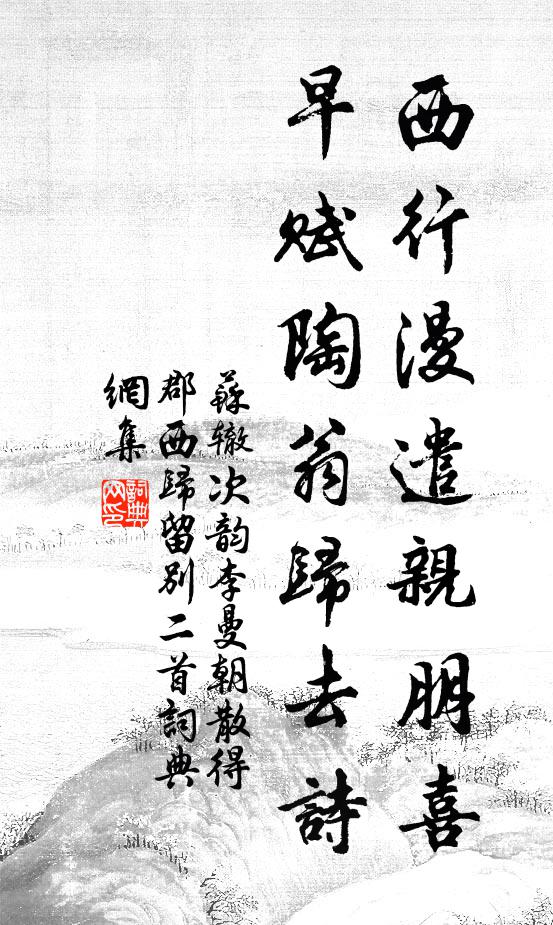 西行漫遣親朋喜
早賦陶翁歸去詩
蘇轍次韵李曼朝散得
郡西歸留别二首詞典
網集
詞典
网印